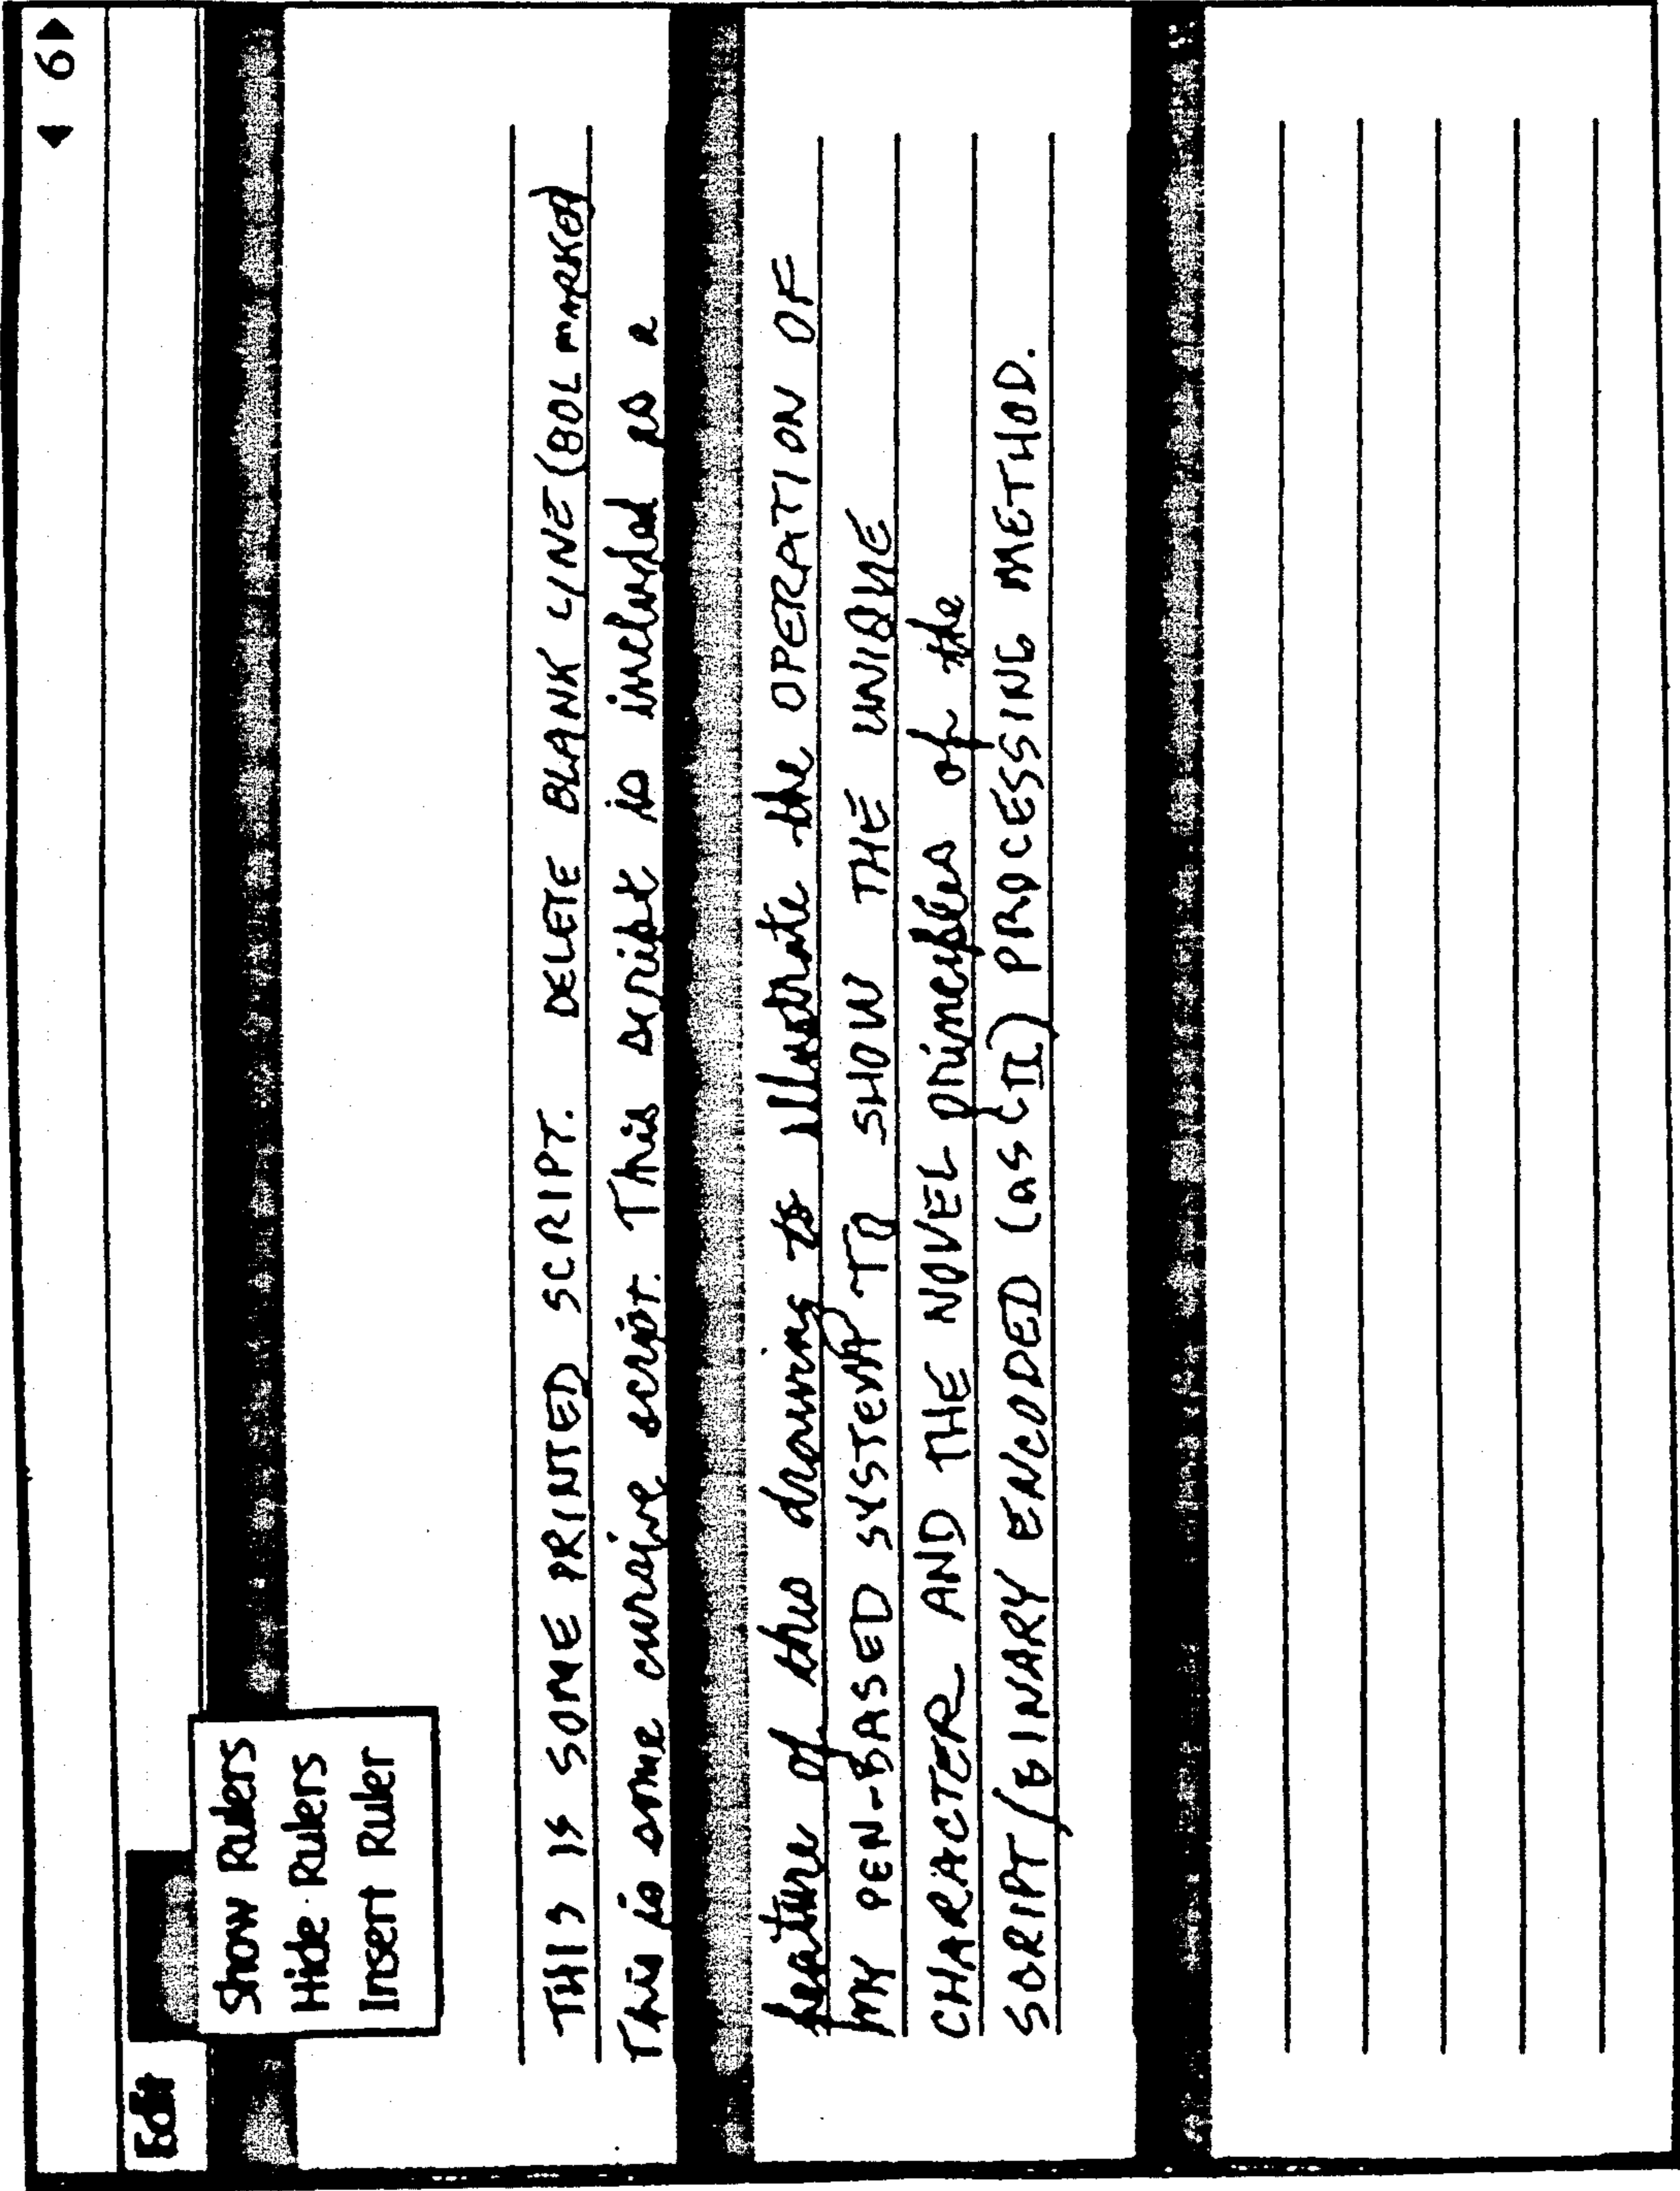 ◀ 6 ▶
Edit
Show Rulers
Hide Rulers
Insert Ruler
THIS IS SOME PRINTED SCRIPT. DELETE BLANK LINE (BOL MARKER)
This is some cursive script. This script is included as a
feature of this drawing to illustrate the OPERATION OF
MY PEN-BASED SYSTEM TO SHOW THE UNIQUE
CHARACTER AND THE NOVEL principles of the
SCRIPT/BINARY ENCODED (asCII) PROCESSING METHOD.